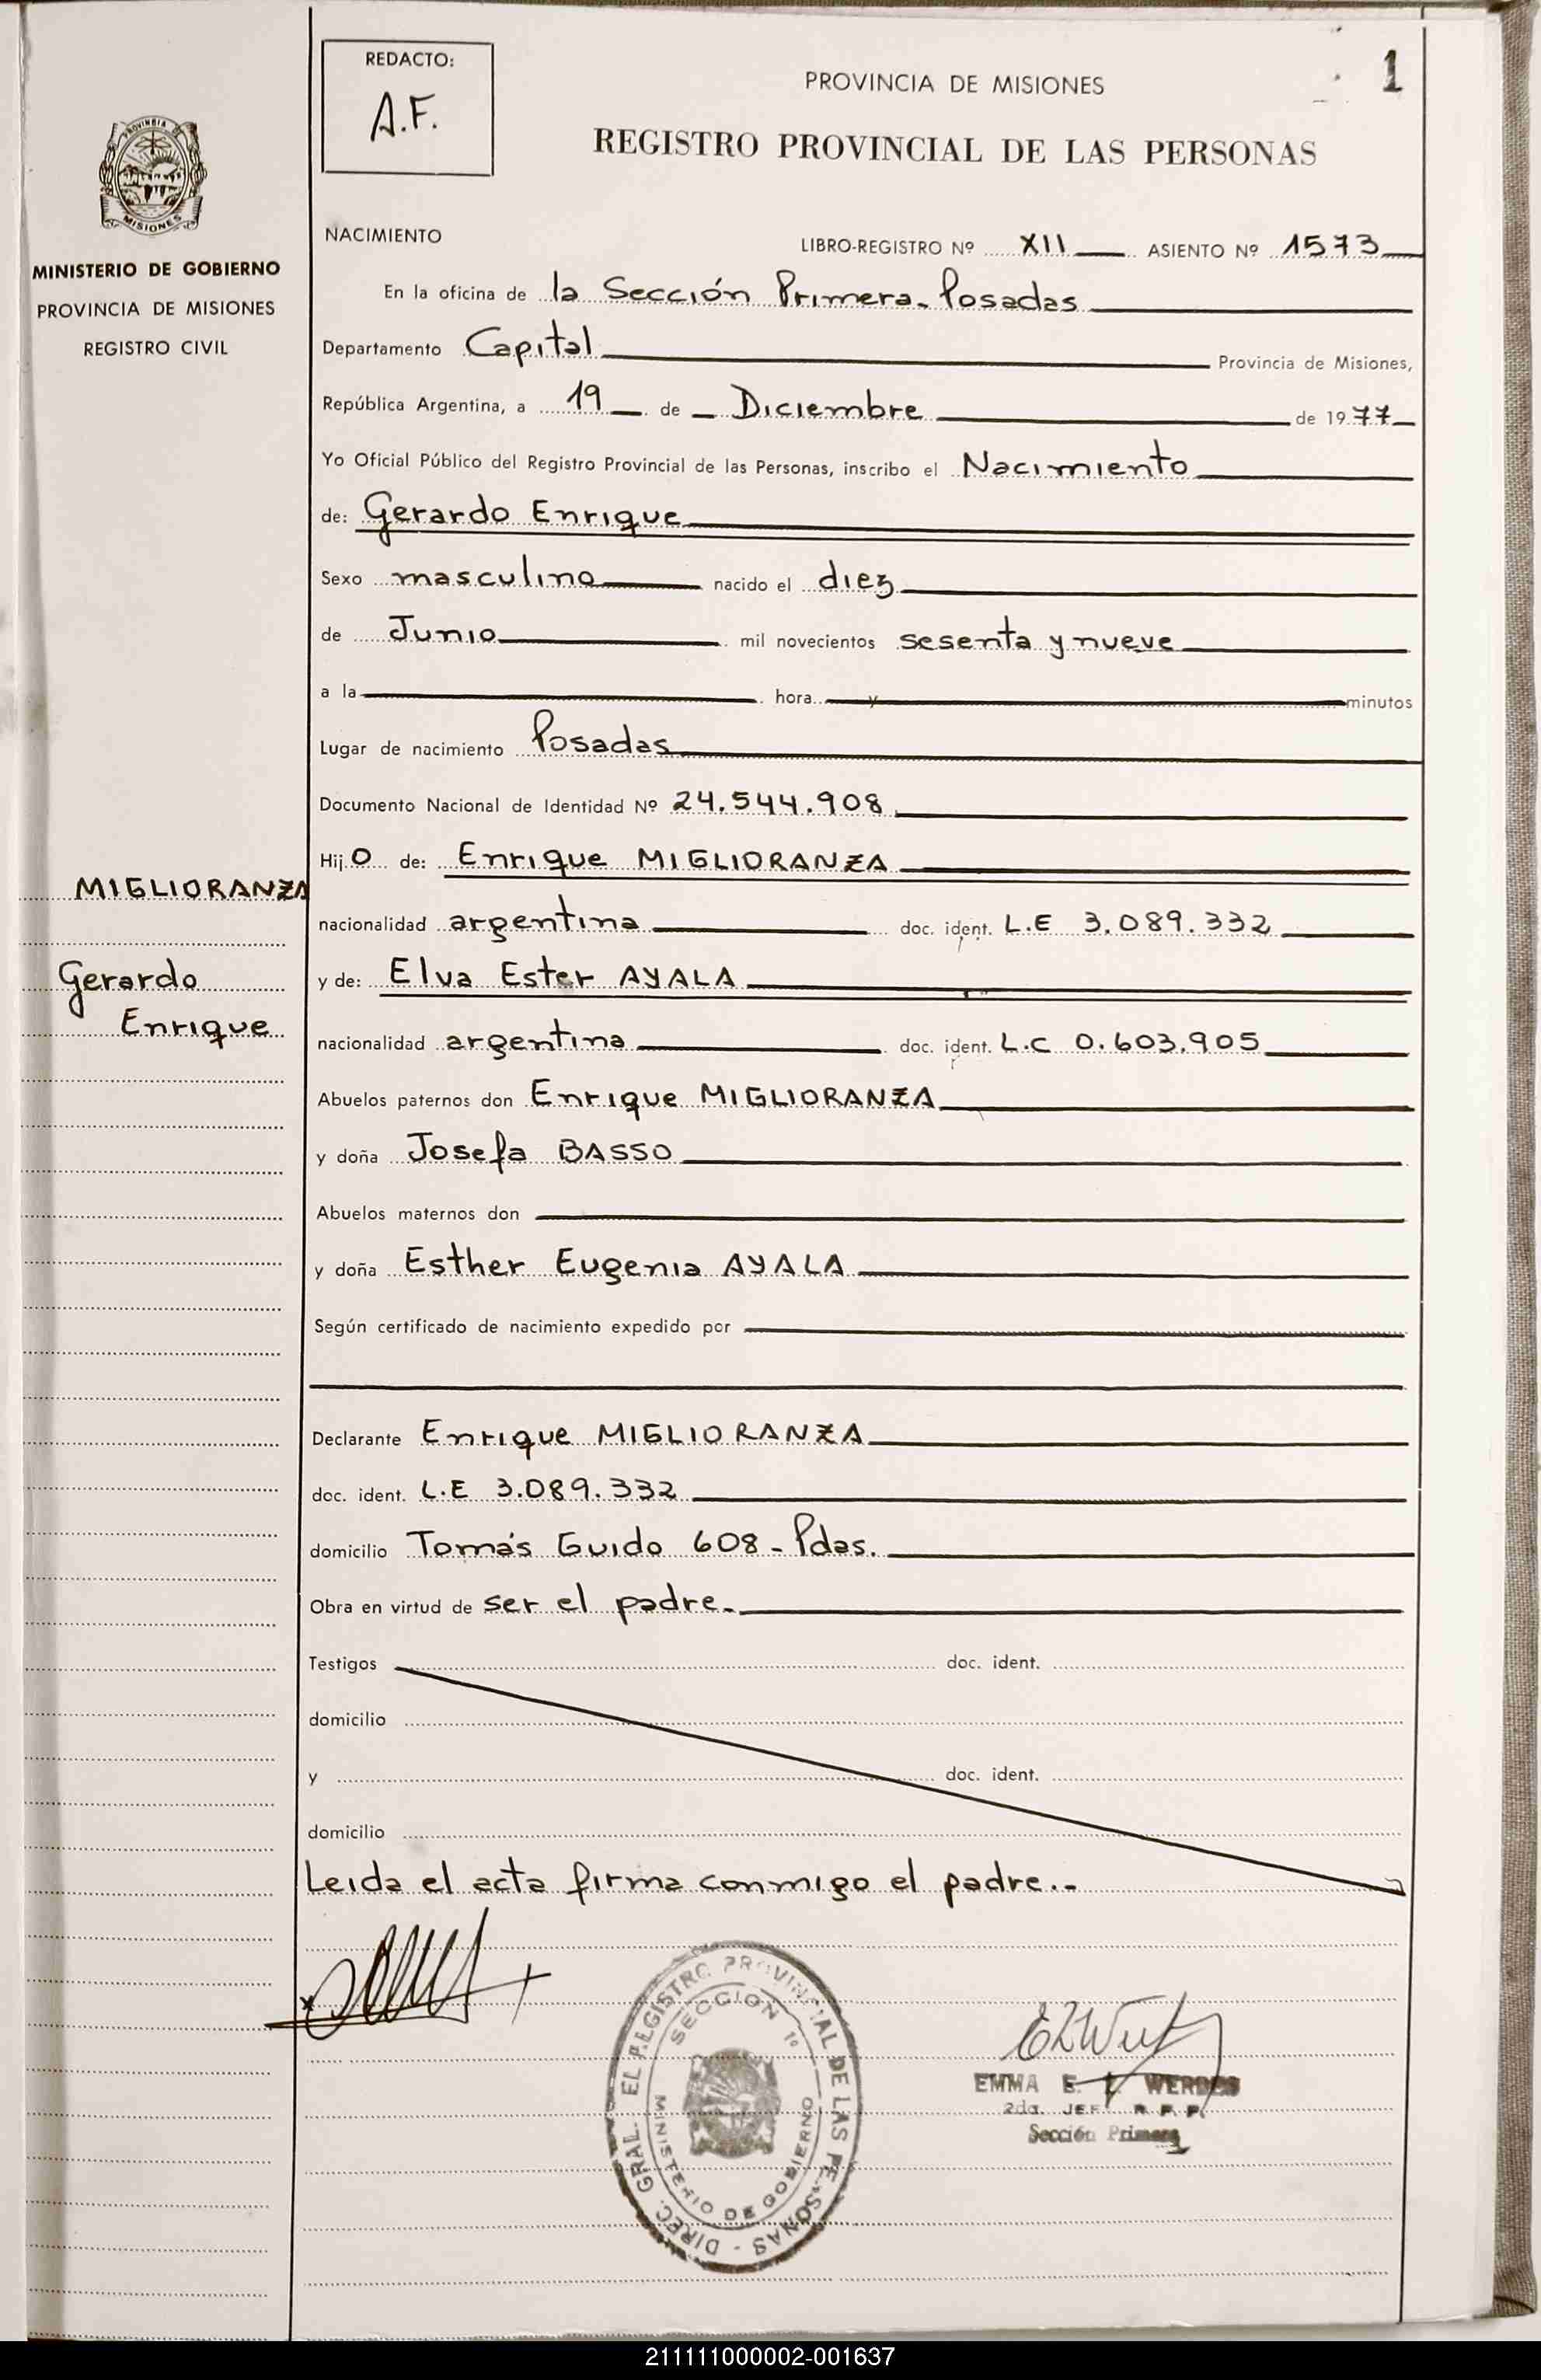 REDACTO:
A.F.
PROVINCIA DE MISIONES
1
REGISTRO PROVINCIAL DE LAS PERSONAS
PROVINCIA DE
MISIONES
MINISTERIO DE GOBIERNO
PROVINCIA DE MISIONES
REGISTRO CIVIL
NACIMIENTO
LIBRO-REGISTRO Nº XII ASIENTO Nº 1573
En la oficina de la Sección Primera - Posadas
Departamento Capital Provincia de Misiones,
República Argentina, a 19 de Diciembre de 1977
Yo Oficial Público del Registro Provincial de las Personas, inscribo el Nacimiento
de: Gerardo Enrique
Sexo masculino nacido el diez
de Junio mil novecientos sesenta y nueve
a la hora y minutos
Lugar de nacimiento Posadas
Documento Nacional de Identidad Nº 24.544.908
Hijo de: Enrique MIGLIORANZA
MIGLIORANZA
nacionalidad argentina doc. ident. L.E 3.089.332
Gerardo
y de: Elva Ester AYALA
Enrique
nacionalidad argentina doc. ident. L.C 0.603.905
Abuelos paternos don Enrique MIGLIORANZA
y doña Josefa BASSO
Abuelos maternos don
y doña Esther Eugenia AYALA
Según certificado de nacimiento expedido por
Declarante Enrique MIGLIORANZA
doc. ident. L.E 3.089.332
domicilio Tomás Guido 608 - Pdas.
Obra en virtud de ser el padre.
Testigos doc. ident.
domicilio
y doc. ident.
domicilio
Leida el acta firma conmigo el padre.-
DIREC. GRAL. EL REGISTRO PROVINCIAL DE LAS PERSONAS -
SECCION 1º
MINISTERIO DE GOBIERNO
EMMA E. WERDES
2da. JEF R. P. P.
Sección Primera
211111000002-001637